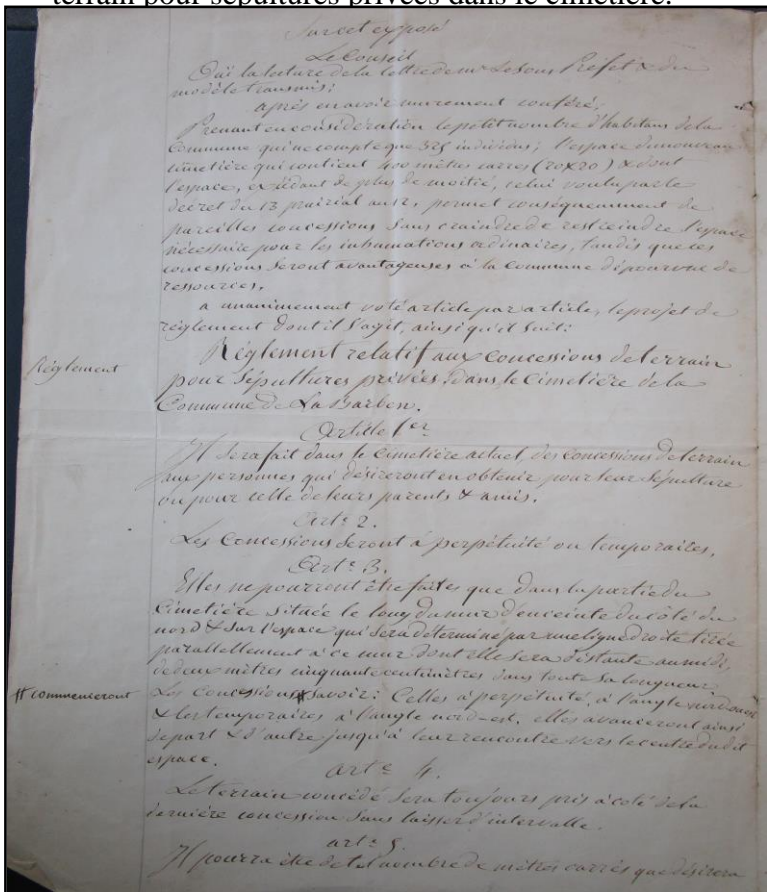 terrain pour sépultures privées dans le cimetière.
Sur cet exposé
Le Conseil
Oui la lecture de la lettre de mr Le Sous Préfet & du
modèle transmis;
après en avoir murement conféré,
Prenant en considération le petit nombre d'habitans de la
Commune qui ne compte que 325 individus; l'espace du nouveau
cimetière qui contient 400 mètres carrés (20x20) & dont
l'espace, excédant de plus de moitié, celui voulu par le
décret du 13 prairial an 12, permet conséquemment de
pareilles concessions sans craindre de restreindre l'espace
nécessaire pour les inhumations ordinaires, tandis que ces
concessions seront avantageuses à la Commune dépourvue de
ressources.
a unanimement voté article par article, le projet de
réglement dont il s'agit, ainsi qu'il suit:
Réglement
Réglement relatif aux concessions de terrain
pour Sépultures privées dans le Cimetière de la
Commune de La Barben.
Article 1er
Il sera fait dans le Cimetière actuel, des concessions de terrain
aux personnes qui désireront en obtenir pour leur Sépulture
ou pour celle de leurs parents & amis.
Arte 2.
Les Concessions seront à perpétuité ou temporaires.
Arte 3.
Elles ne pourront être faites que dans la partie du
Cimetière située le long du mur d'enceinte du côté du
nord & sur l'espace qui sera déterminé par une ligne droite tirée
parallellement à ce mur dont elle sera distante au midi,
de deux mètres cinquante centimètres dans toute sa longueur.
# commenceront
Les Concessions # savoir: Celles à perpétuité, à l'angle nord-ouest
& les temporaires à l'angle nord-est. elles avanceront ainsi
de part & d'autre jusqu'à leur rencontre vers le centre du dit
espace.
arte 4.
Le terrain concédé sera toujours pris à coté de la
dernière concession sans laisser d'intervalle.
arte 5.
Il pourra être de tel nombre de mètres carrés que désirera